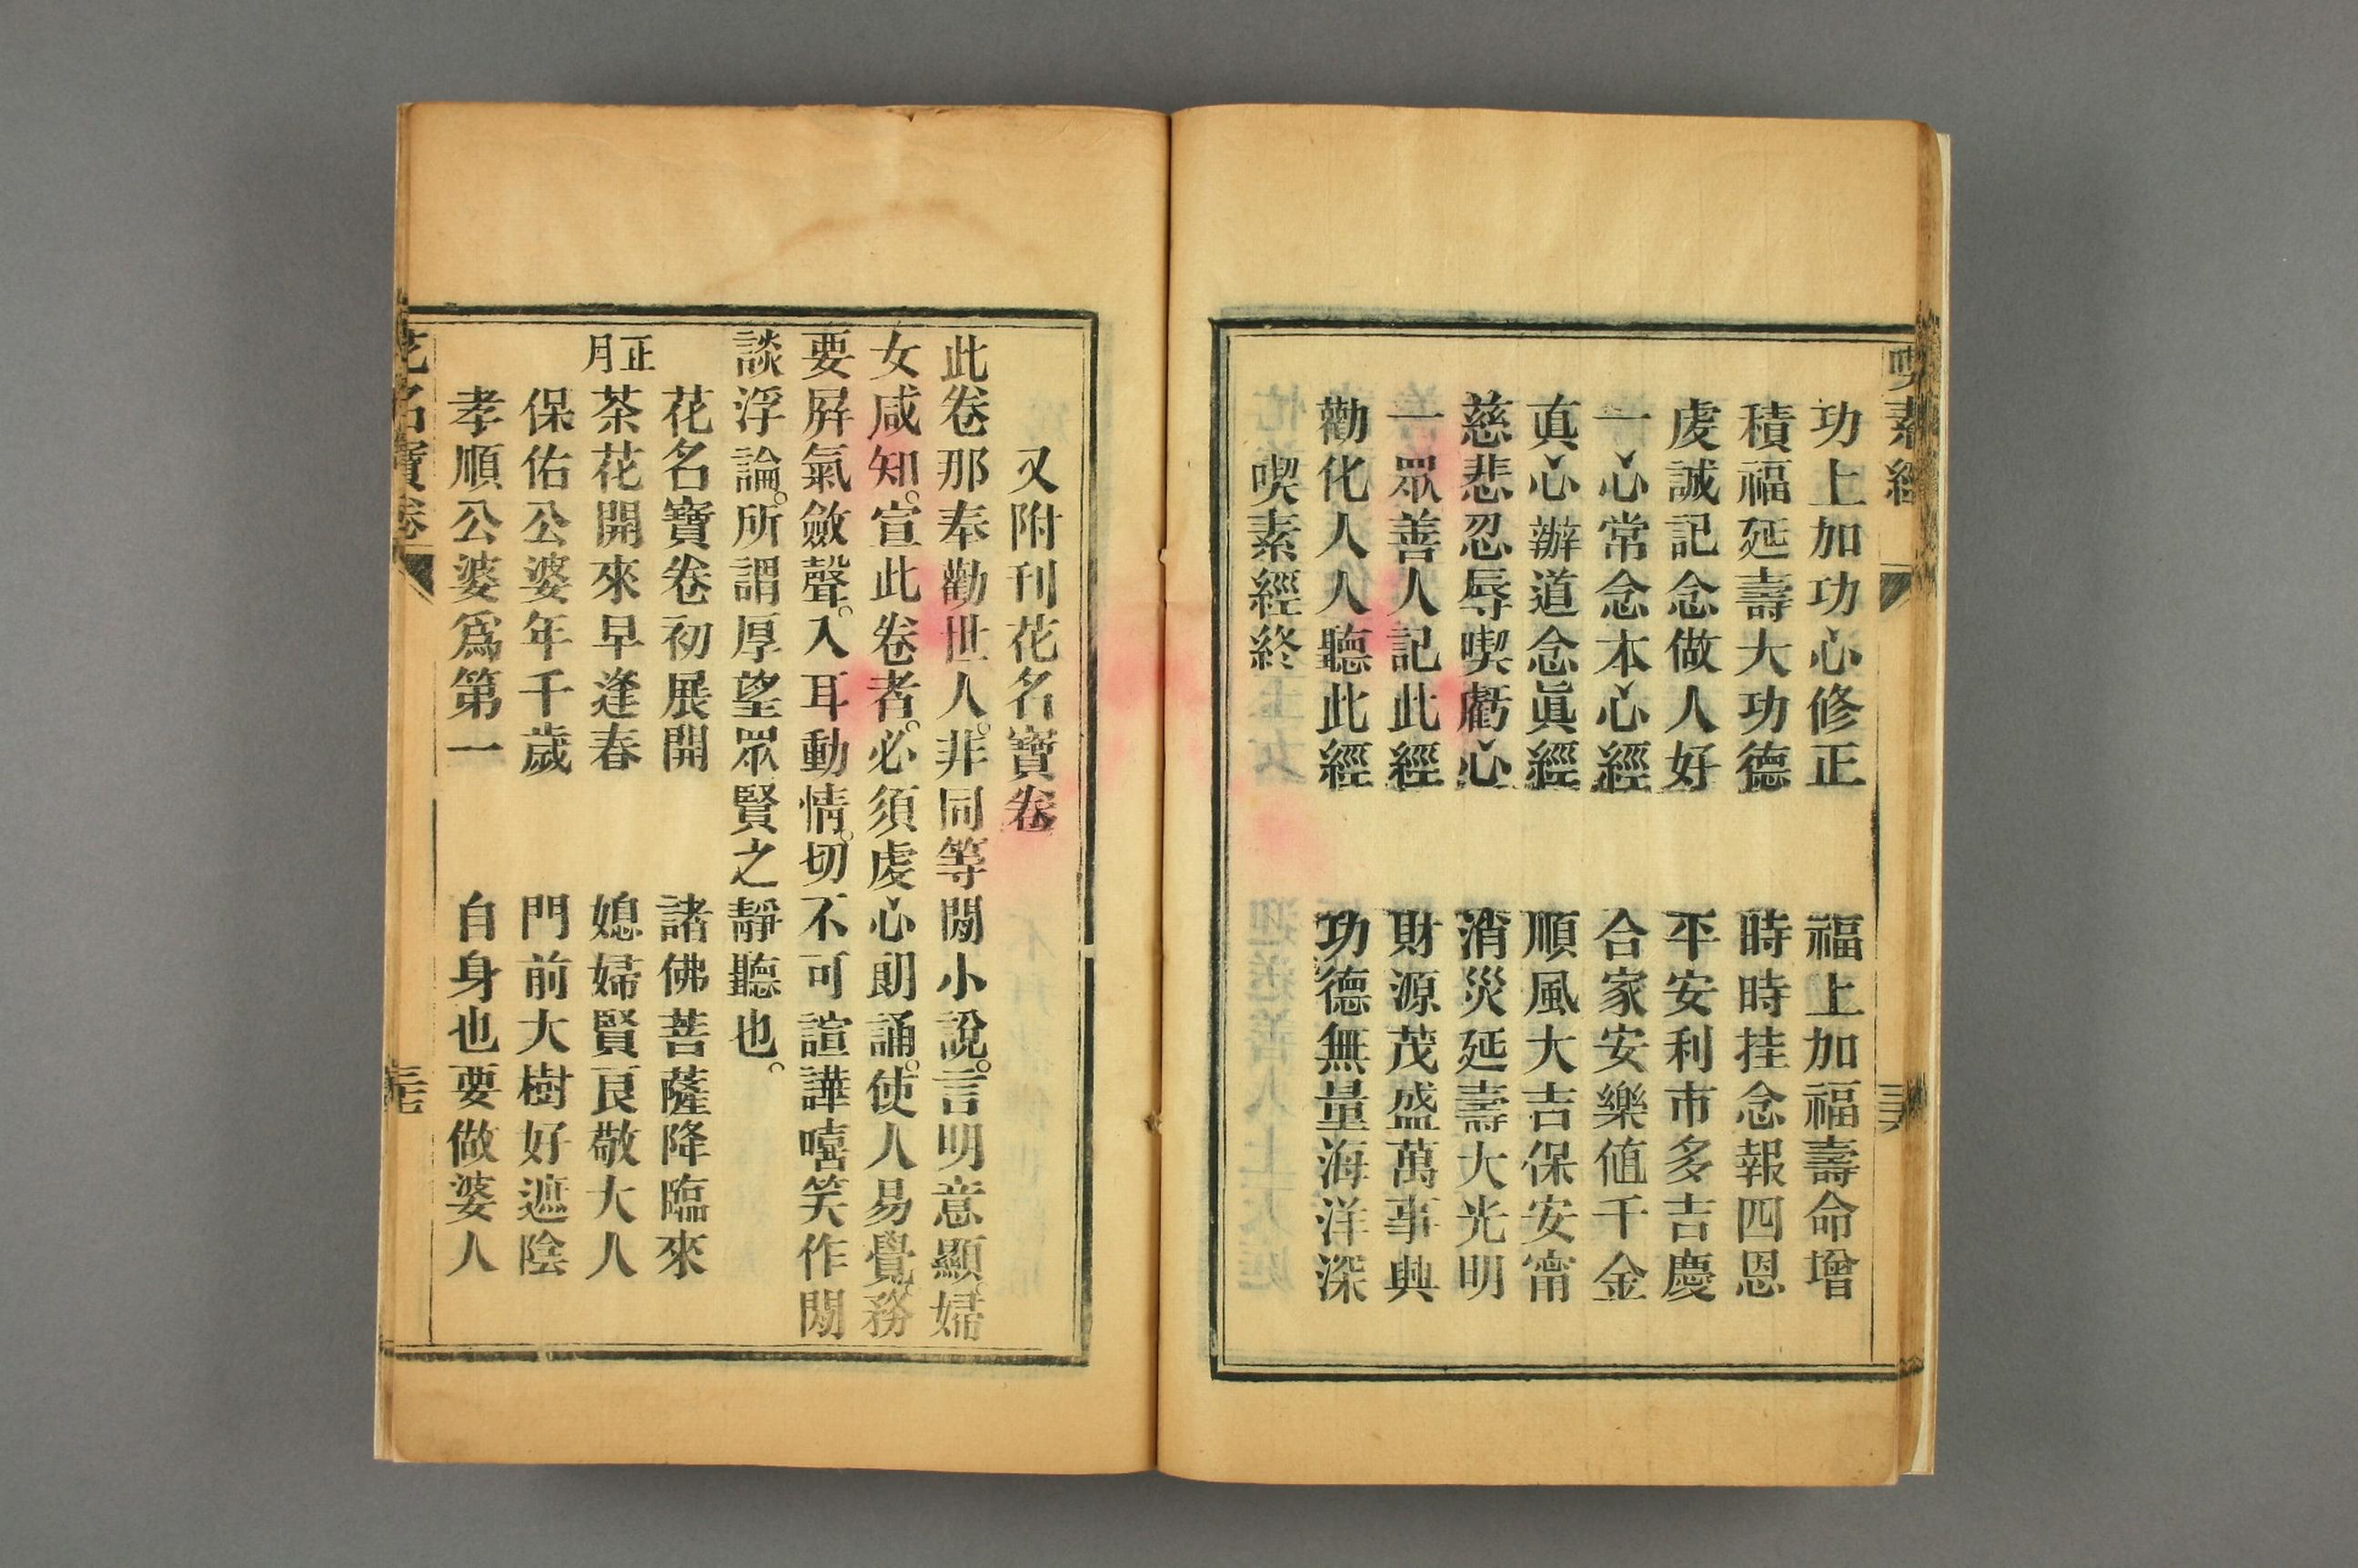 喫素經
三六
功上加功心修正　福上加福壽命增
積福延壽大功德　時時挂念報四恩
虔誠記念做人好　平安利市多吉慶
一心常念本心經　合家安樂値千金
真心辦道念眞經　順風大吉保安甯
慈悲忍辱喫虧心　消災延壽大光明
一眾善人記此經　財源茂盛萬事興
勸化人人聽此經　功德無量海洋深
喫素經終
又附刊花名寶卷
此卷那奉勸世人。非同等閒小說。言明意顯。婦
女咸知。宣此卷者。必須虔心朗誦。使人易覺。務
要屛氣斂聲。入耳動情。切不可諠譁嘻笑作閒
談浮論。所謂厚望眾賢之靜聽也。
花名寶卷初展開　諸佛菩薩降臨來
正月　茶花開來早逢春　媳婦賢良敬大人
保佑公婆年千歲　門前大樹好遮陰
孝順公婆爲第一　自身也要做婆人
花名寶卷
三七